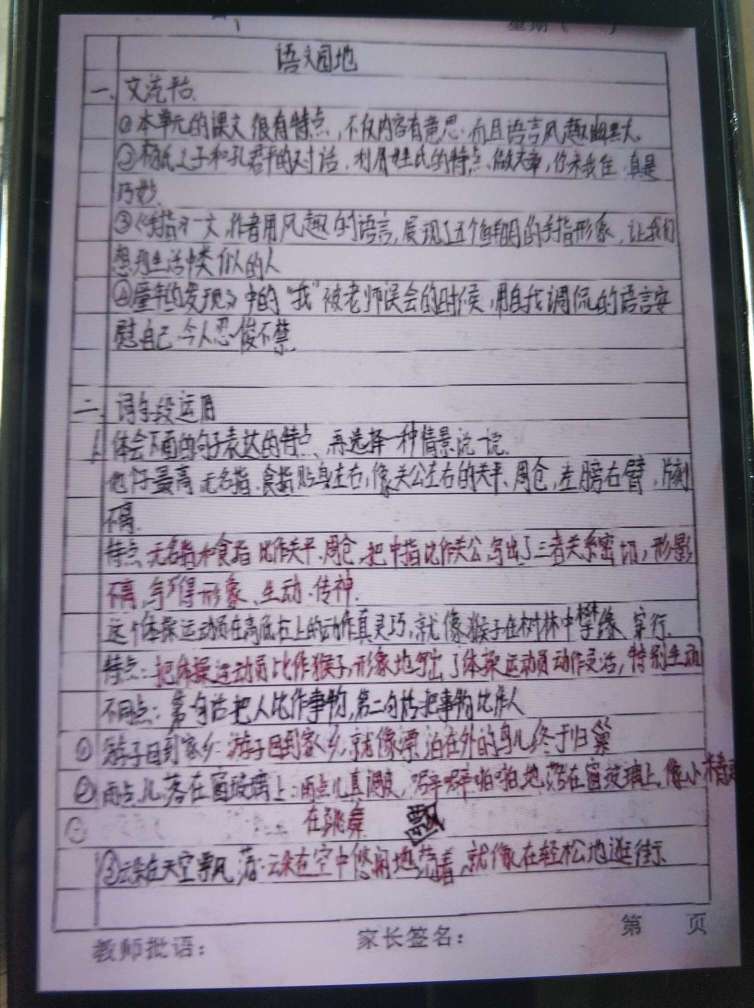 星期（ ）
语文园地
一、交流平台.
①本单元的课文很有特点，不仅内容有意思.而且语言风趣幽默大.
②杨氏之子和孔君平的对话，利用姓氏的特点、做文章，你来我往.真是
巧妙.
③《手指》一文，作者用风趣的语言，展现了五个鲜明的手指形象，让我们
想到生活中类似的人
④童年的发现》中的“我”被老师误会的时候，用自我调侃的语言安
慰自己.令人忍俊不禁.
二、词句段运用
1.体会下面的句子表达的特点、再选择一种情景说一说.
他仔最高，无名指、食指贴身左右，像关公左右的关平、周仓，左膀右臂，片刻
不离.
特点.无名指和食指比作关平、周仓.把中指比作关公，写出了三者关系密切，形影
不离，写得形象、生动、传神.
这个体操运动员在高低杠上的动作真灵巧，就像猴子在树林中攀缘、穿行.
特点：把体操运动员比作猴子，形象地写出了体操运动员动作灵活，特别生动
不同点：第一句话把人比作事物，第二句话把事物比作人
①游子回到家乡：游子回到家乡，就像漂泊在外的鸟儿终于归巢
②雨点儿落在窗玻璃上：雨点儿真调皮，噼噼啪啪地落在窗玻璃上，像小精灵
在跳舞 飘
③云朵在天空飘荡：云朵在空中悠闲地荡着，就像在轻松地逛街.
教师批语： 家长签名： 第 页